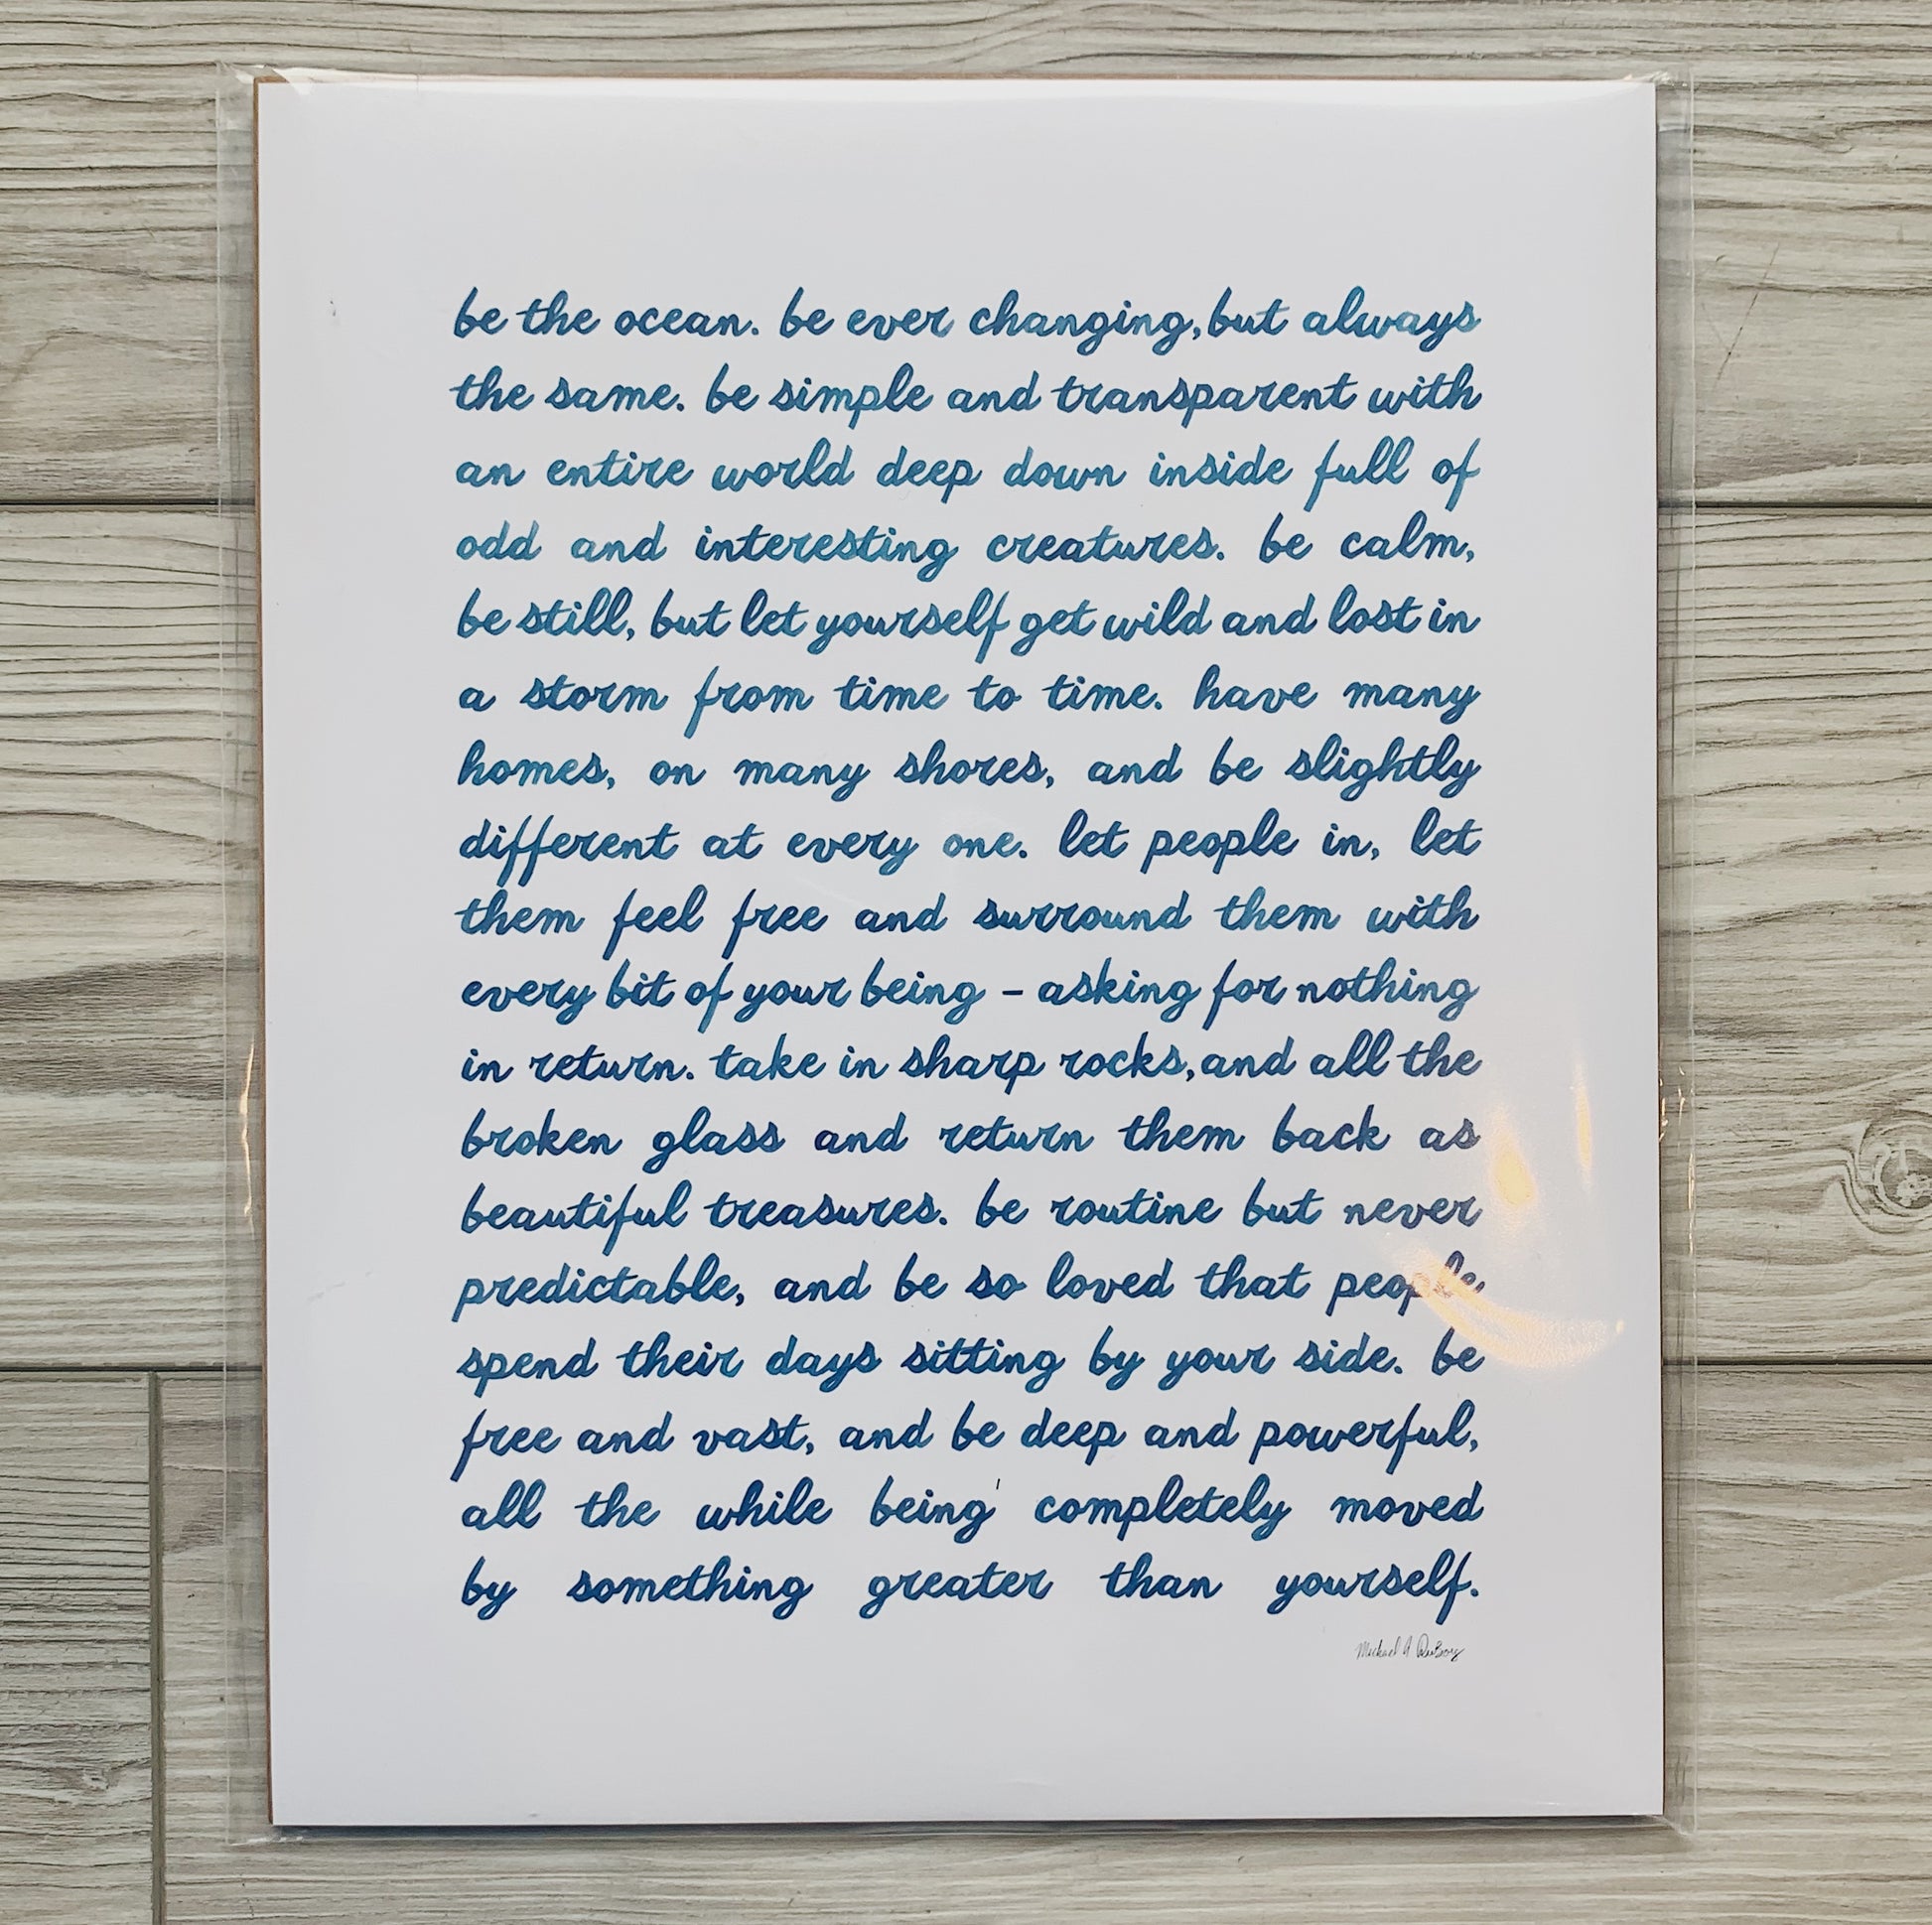 be the ocean. be ever changing, but always
the same. be simple and transparent with
an entire world deep down inside full of
odd and interesting creatures. be calm,
be still, but let yourself get wild and lost in
a storm from time to time. have many
homes, on many shores, and be slightly
different at every one. let people in, let
them feel free and surround them with
every bit of your being - asking for nothing
in return. take in sharp rocks, and all the
broken glass and return them back as
beautiful treasures. be routine but never
predictable, and be so loved that people
spend their days sitting by your side. be
free and vast, and be deep and powerful,
all the while being completely moved
by something greater than yourself.
Michael A